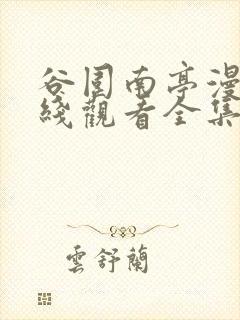 谷围南亭漫
綫觀看全集
雲舒蘭